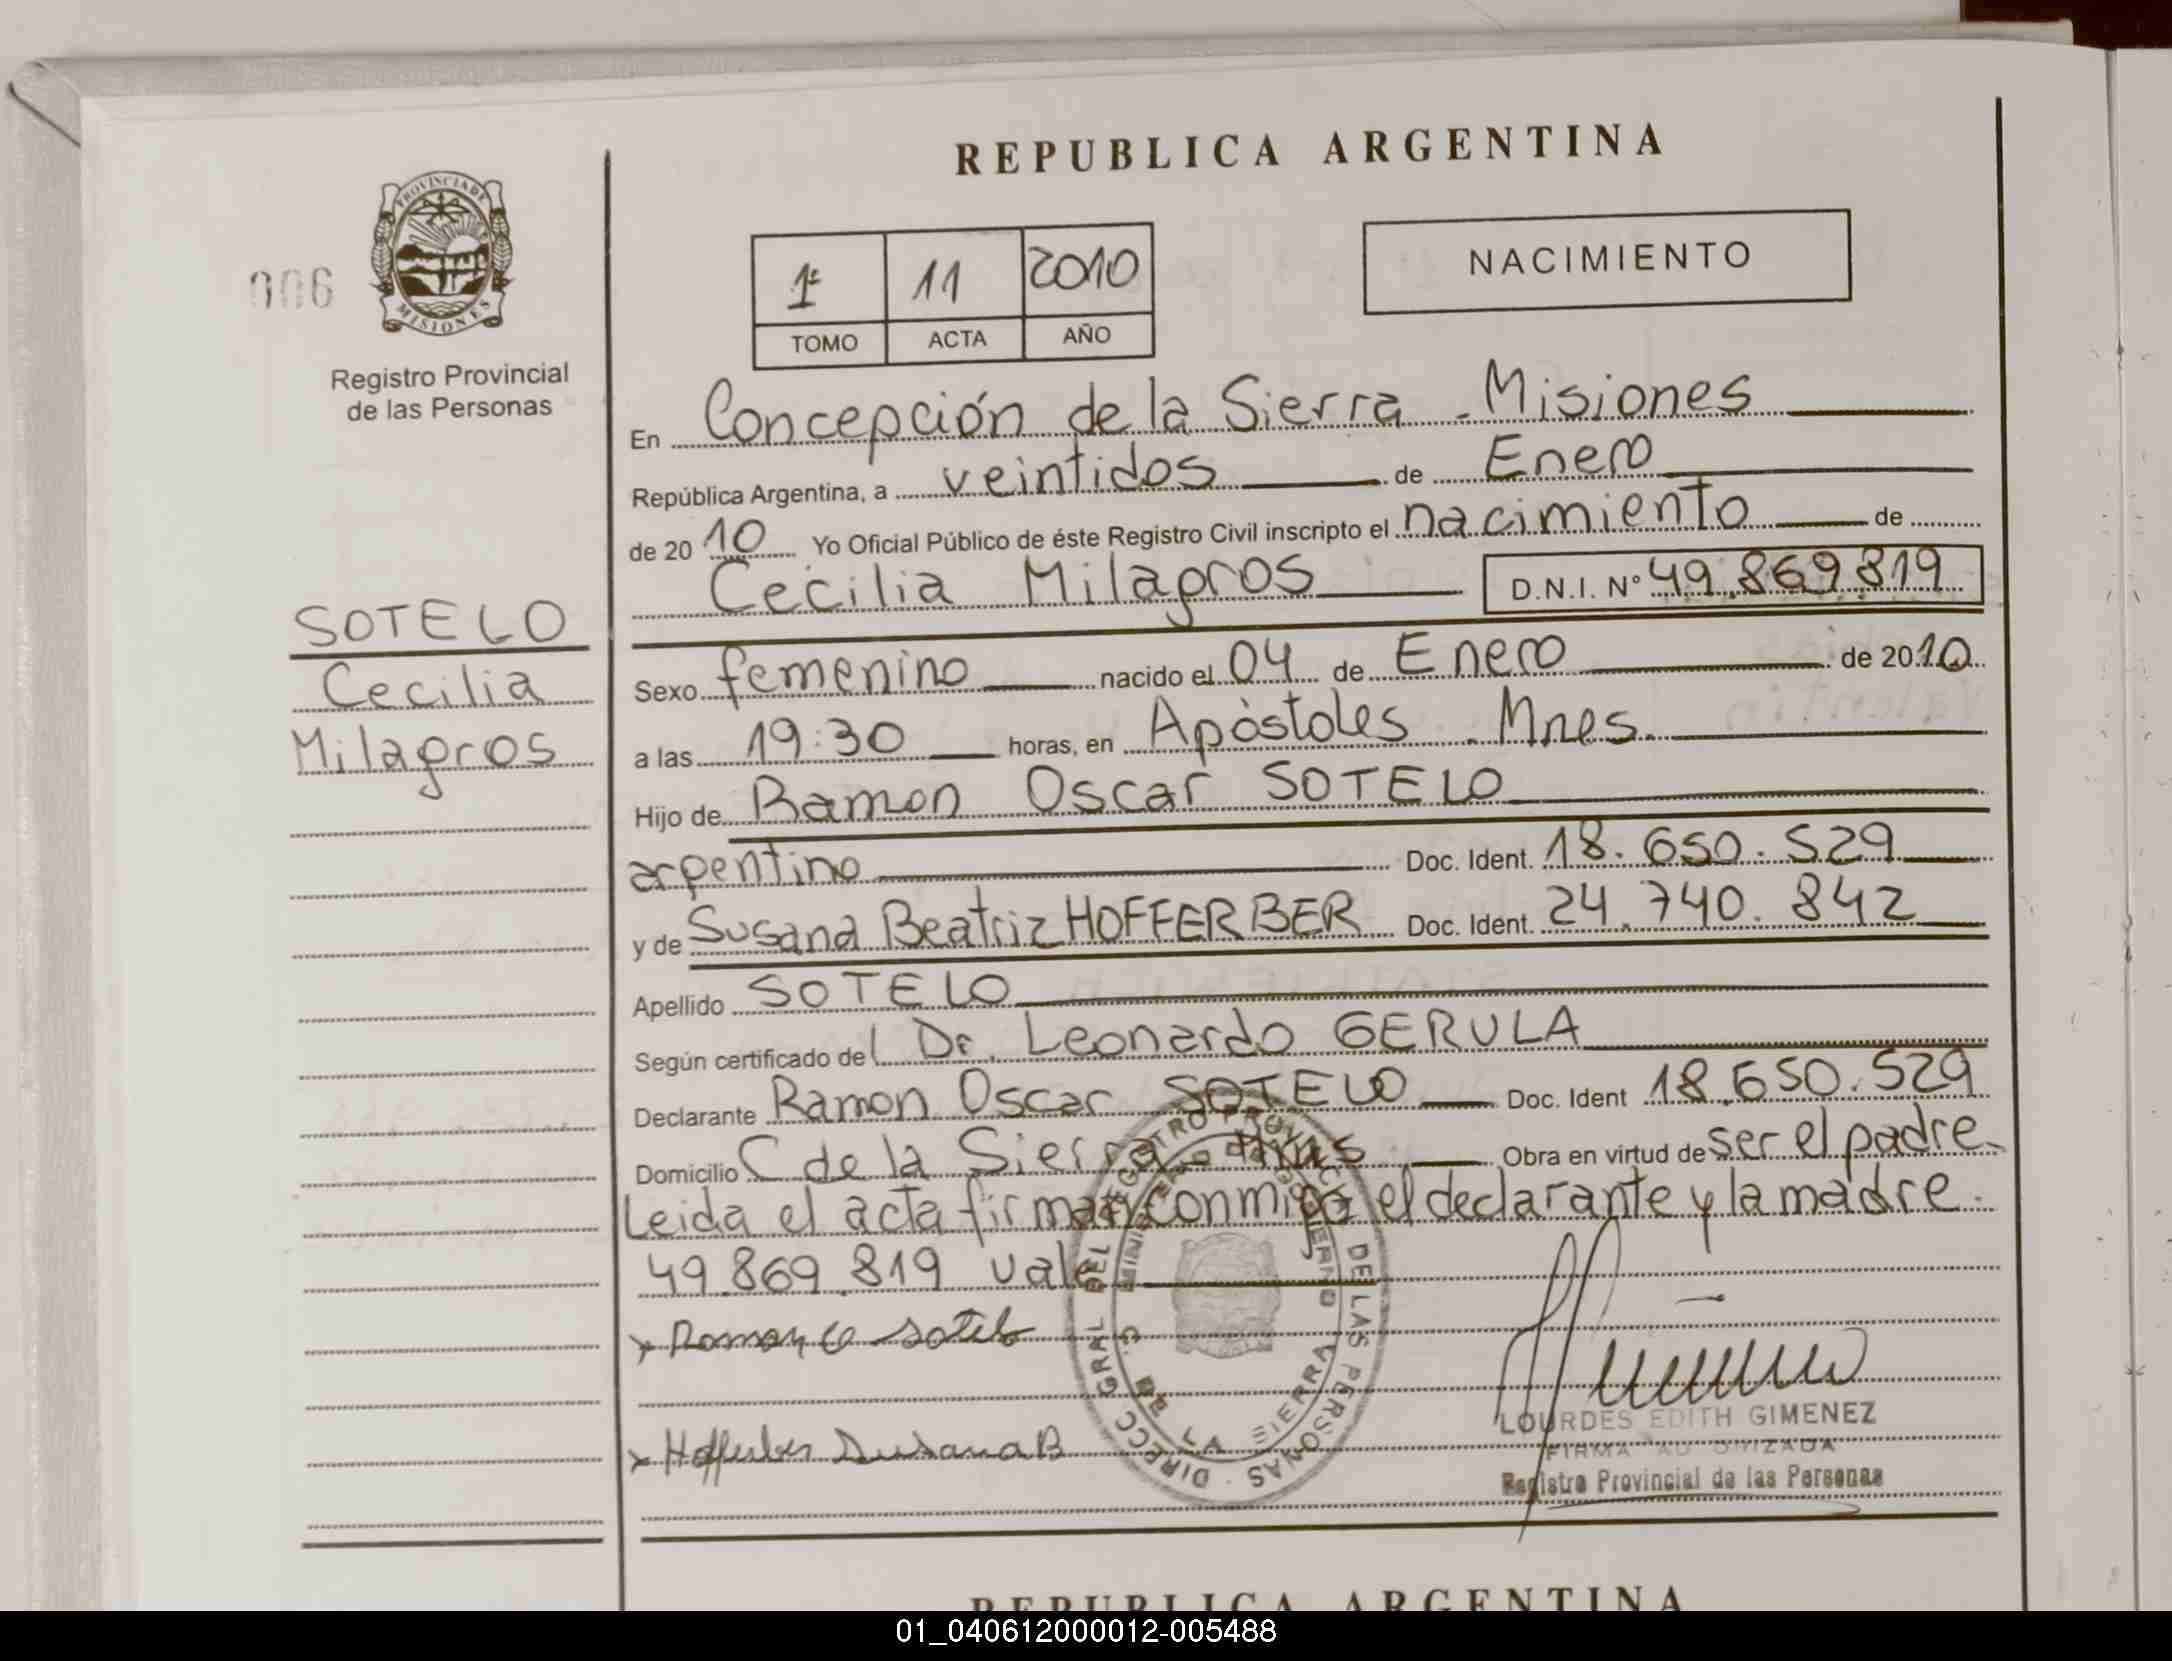 REPUBLICA ARGENTINA
006
PROVINCIA DE
MISIONES
Registro Provincial
de las Personas
1º 11 2010
TOMO ACTA AÑO
NACIMIENTO
En Concepción de la Sierra - Misiones
República Argentina, a veintidos de Enero
de 2010 Yo Oficial Público de éste Registro Civil inscripto el nacimiento de
Cecilia Milagros D.N.I. Nº 49.869.819
SOTELO
Cecilia
Milagros
Sexo femenino nacido el 04 de Enero de 2010
a las 19:30 horas, en Apóstoles . Mnes.
Hijo de Ramon Oscar SOTELO
argentino Doc. Ident. 18.650.529
y de Susana Beatriz HOFFERBER Doc. Ident. 24.740.842
Apellido SOTELO
Según certificado del Dr. Leonardo GERULA
Declarante Ramon Oscar SOTELO Doc. Ident 18.650.529
Domicilio C de la Sierra Mnes Obra en virtud de ser el padre.
Leida el acta firman conmigo el declarante y la madre.
49.869.819 vale
Ramon O Sotelo
Hofferber Susana B
DIRECC GRAL DEL REGISTRO PROVINCIAL DE LAS PERSONAS
C. DE LA SIERRA
LOURDES EDITH GIMENEZ
FIRMA AUTORIZADA
Registro Provincial de las Personas
REPUBLICA ARGENTINA
01_040612000012-005488